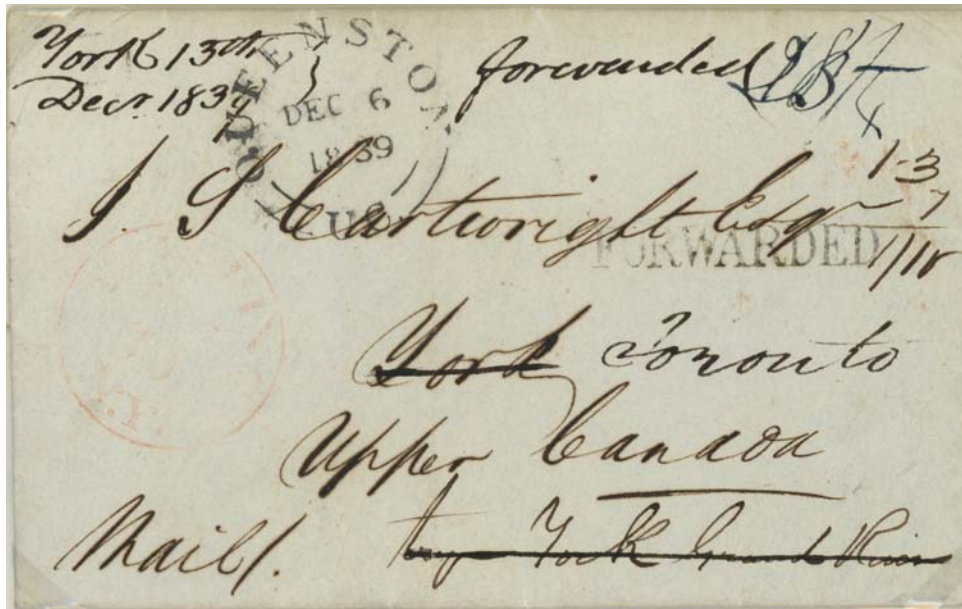 York 13th
Decr 1839
QUEENSTON
DEC 6
1839
U.C
forwarded
1-3
7
1/10
J. S Cartwright Esqr
FORWARDED
York Toronto
Upper Canada
Mail/.
York Grand River